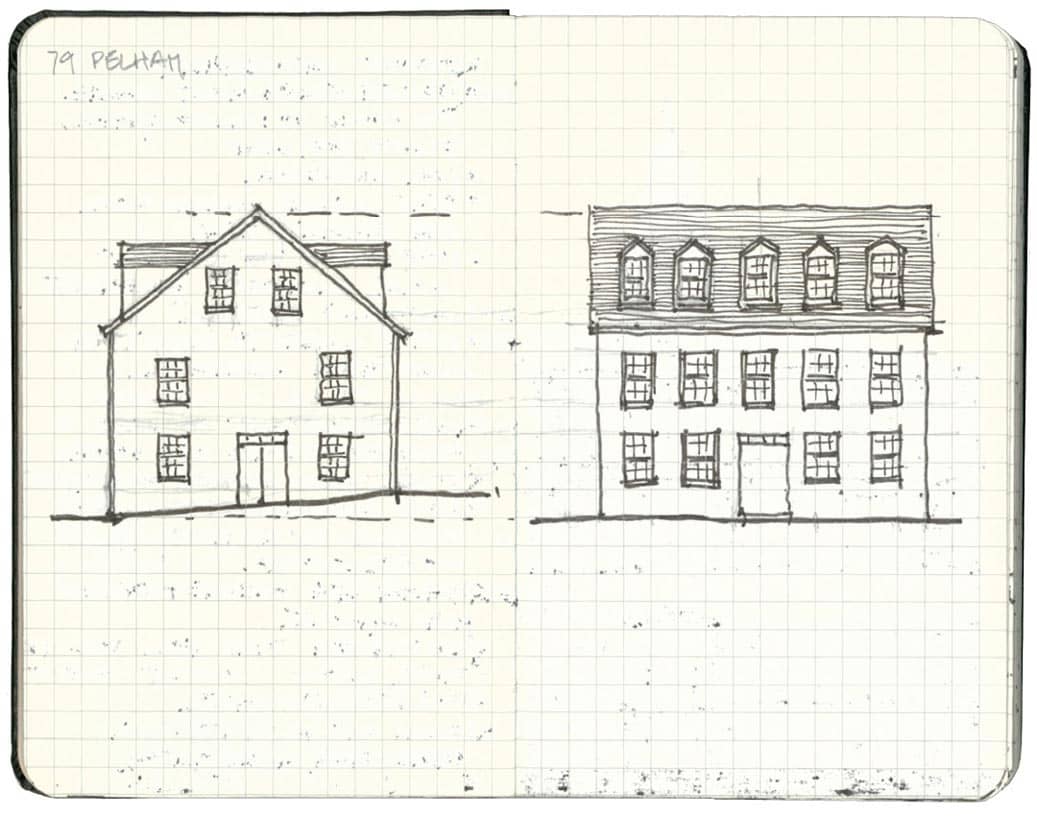 79 PELHAM